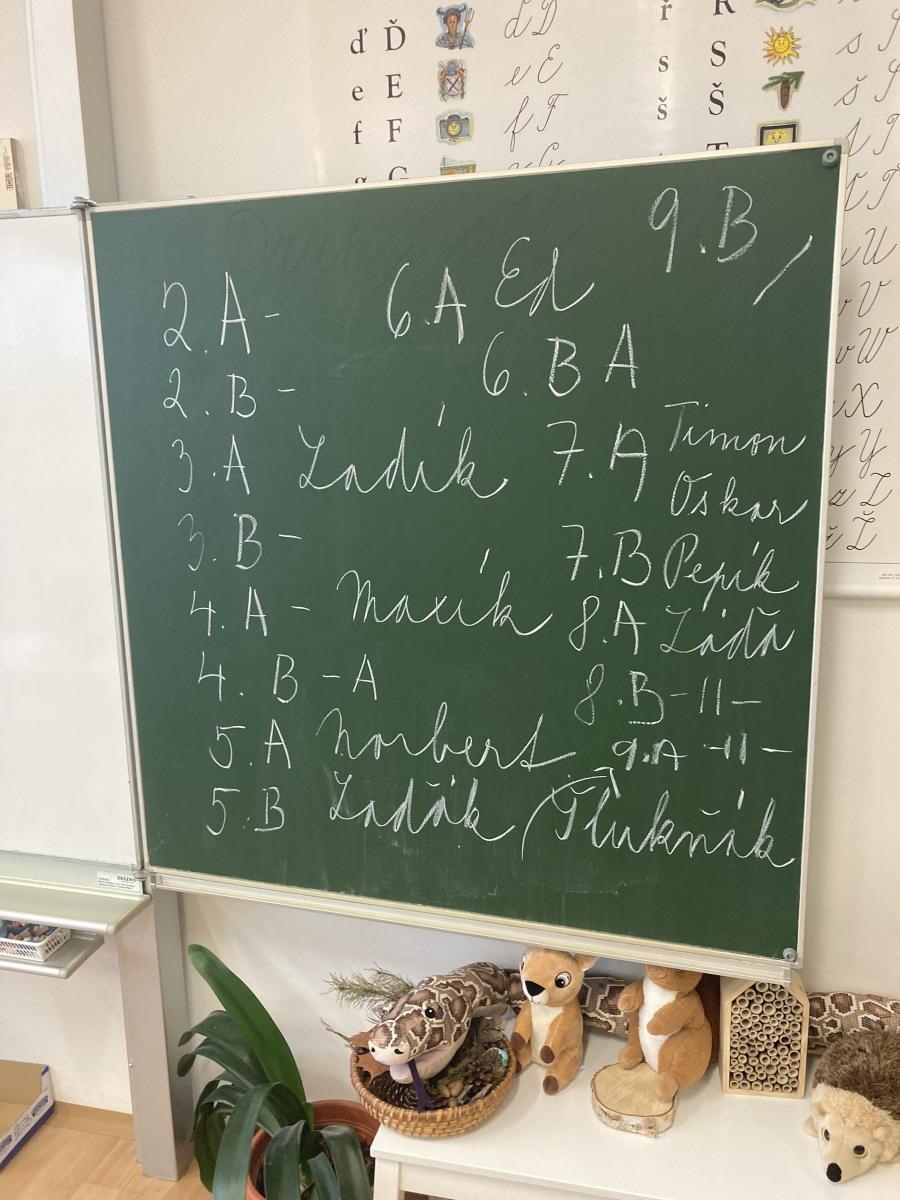 ď Ď d D
e E e E
f F f F
g G
ř R
s S s
š Š š
9.B /
2.A -
2.B -
3.A Ladík
3.B -
4.A - Maxík
4.B - A
5.A Norbert
5.B Laďák
6.A Ed
6.B A
7.A Timon
Oskar
7.B Pepík
8.A Láďa
8.B -11-
9.A -11-
U
V
W
X
y Y
z Z
ž Ž